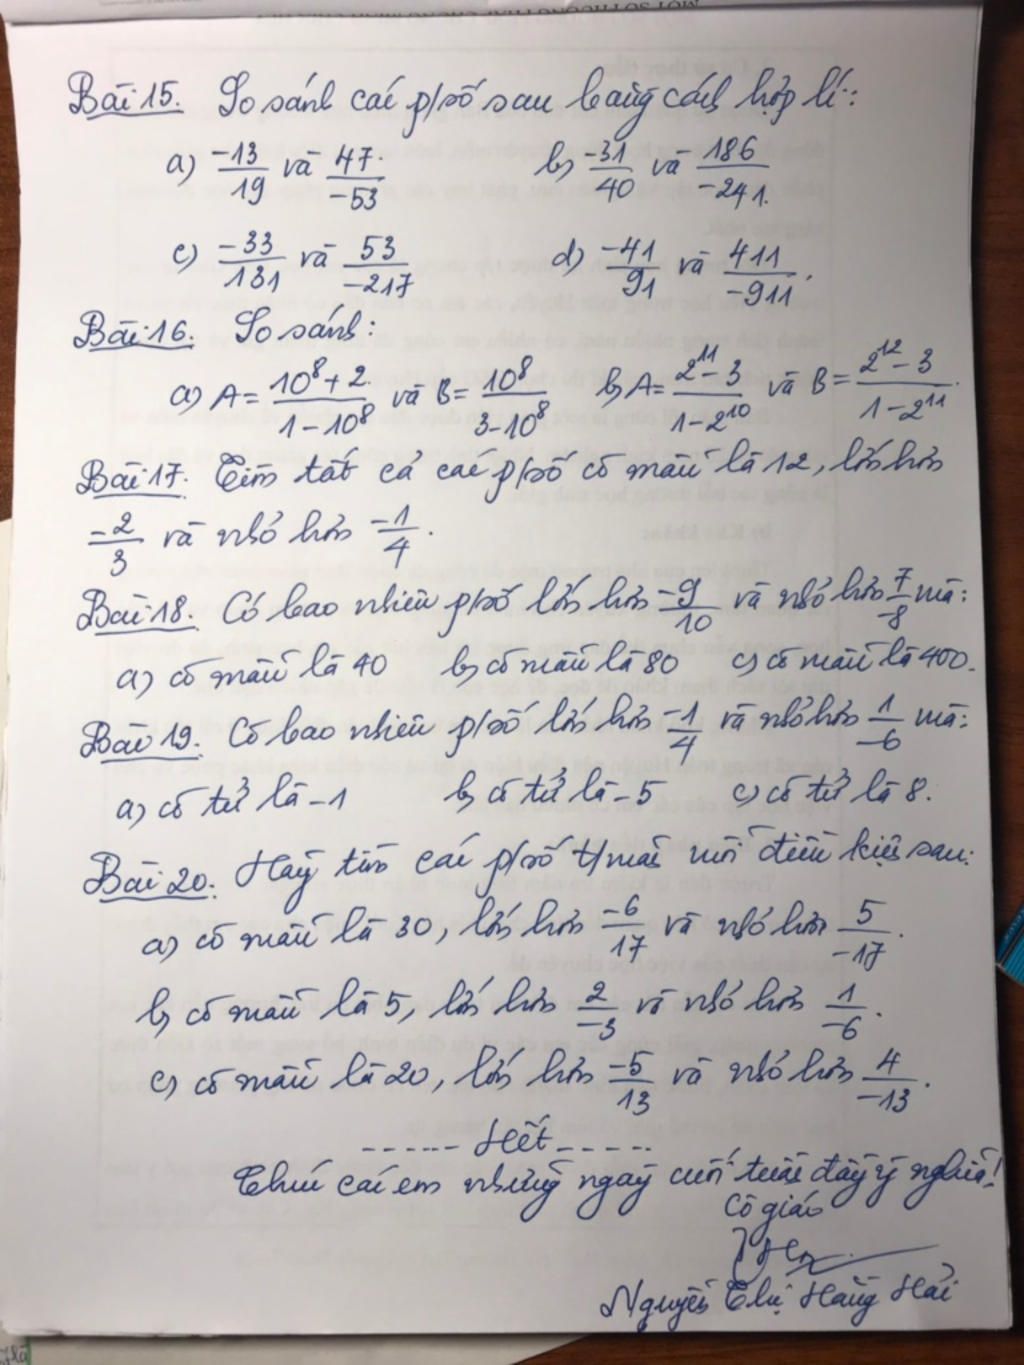 Bài 15. So sánh các p/số sau bằng cách hợp lí:
a) -13/19 và 47/-53 b) -31/40 và 186/-241.
c) -33/131 và 53/-217 d) -41/91 và 411/-911.
Bài 16. So sánh:
a) A = (10^8 + 2)/(1 - 10^8) và B = 10^8/(3 - 10^8) b) A = (2^11 - 3)/(1 - 2^10) và B = (2^12 - 3)/(1 - 2^11).
Bài 17. Tìm tất cả các p/số có mẫu là 12, lớn hơn
-2/3 và nhỏ hơn -1/4.
Bài 18. Có bao nhiêu p/số lớn hơn -9/10 và nhỏ hơn 7/-8 mà:
a) có mẫu là 40 b) có mẫu là 80 c) có mẫu là 400.
Bài 19. Có bao nhiêu p/số lớn hơn -1/4 và nhỏ hơn 1/-6 mà:
a) có tử là -1 b) có tử là -5 c) có tử là 8.
Bài 20. Hãy tìm các p/số t/mãi mỗi điều kiện sau:
a) có mẫu là 30, lớn hơn -6/17 và nhỏ hơn 5/-17.
b) có mẫu là 5, lớn hơn 2/-3 và nhỏ hơn 1/-6.
c) có mẫu là 20, lớn hơn -5/13 và nhỏ hơn 4/-13.
------ Hết ------
Chúc các em những ngày cuối tuần đầy ý nghĩa!
Cô giáo
Nguyễn Thị Hằng Hải